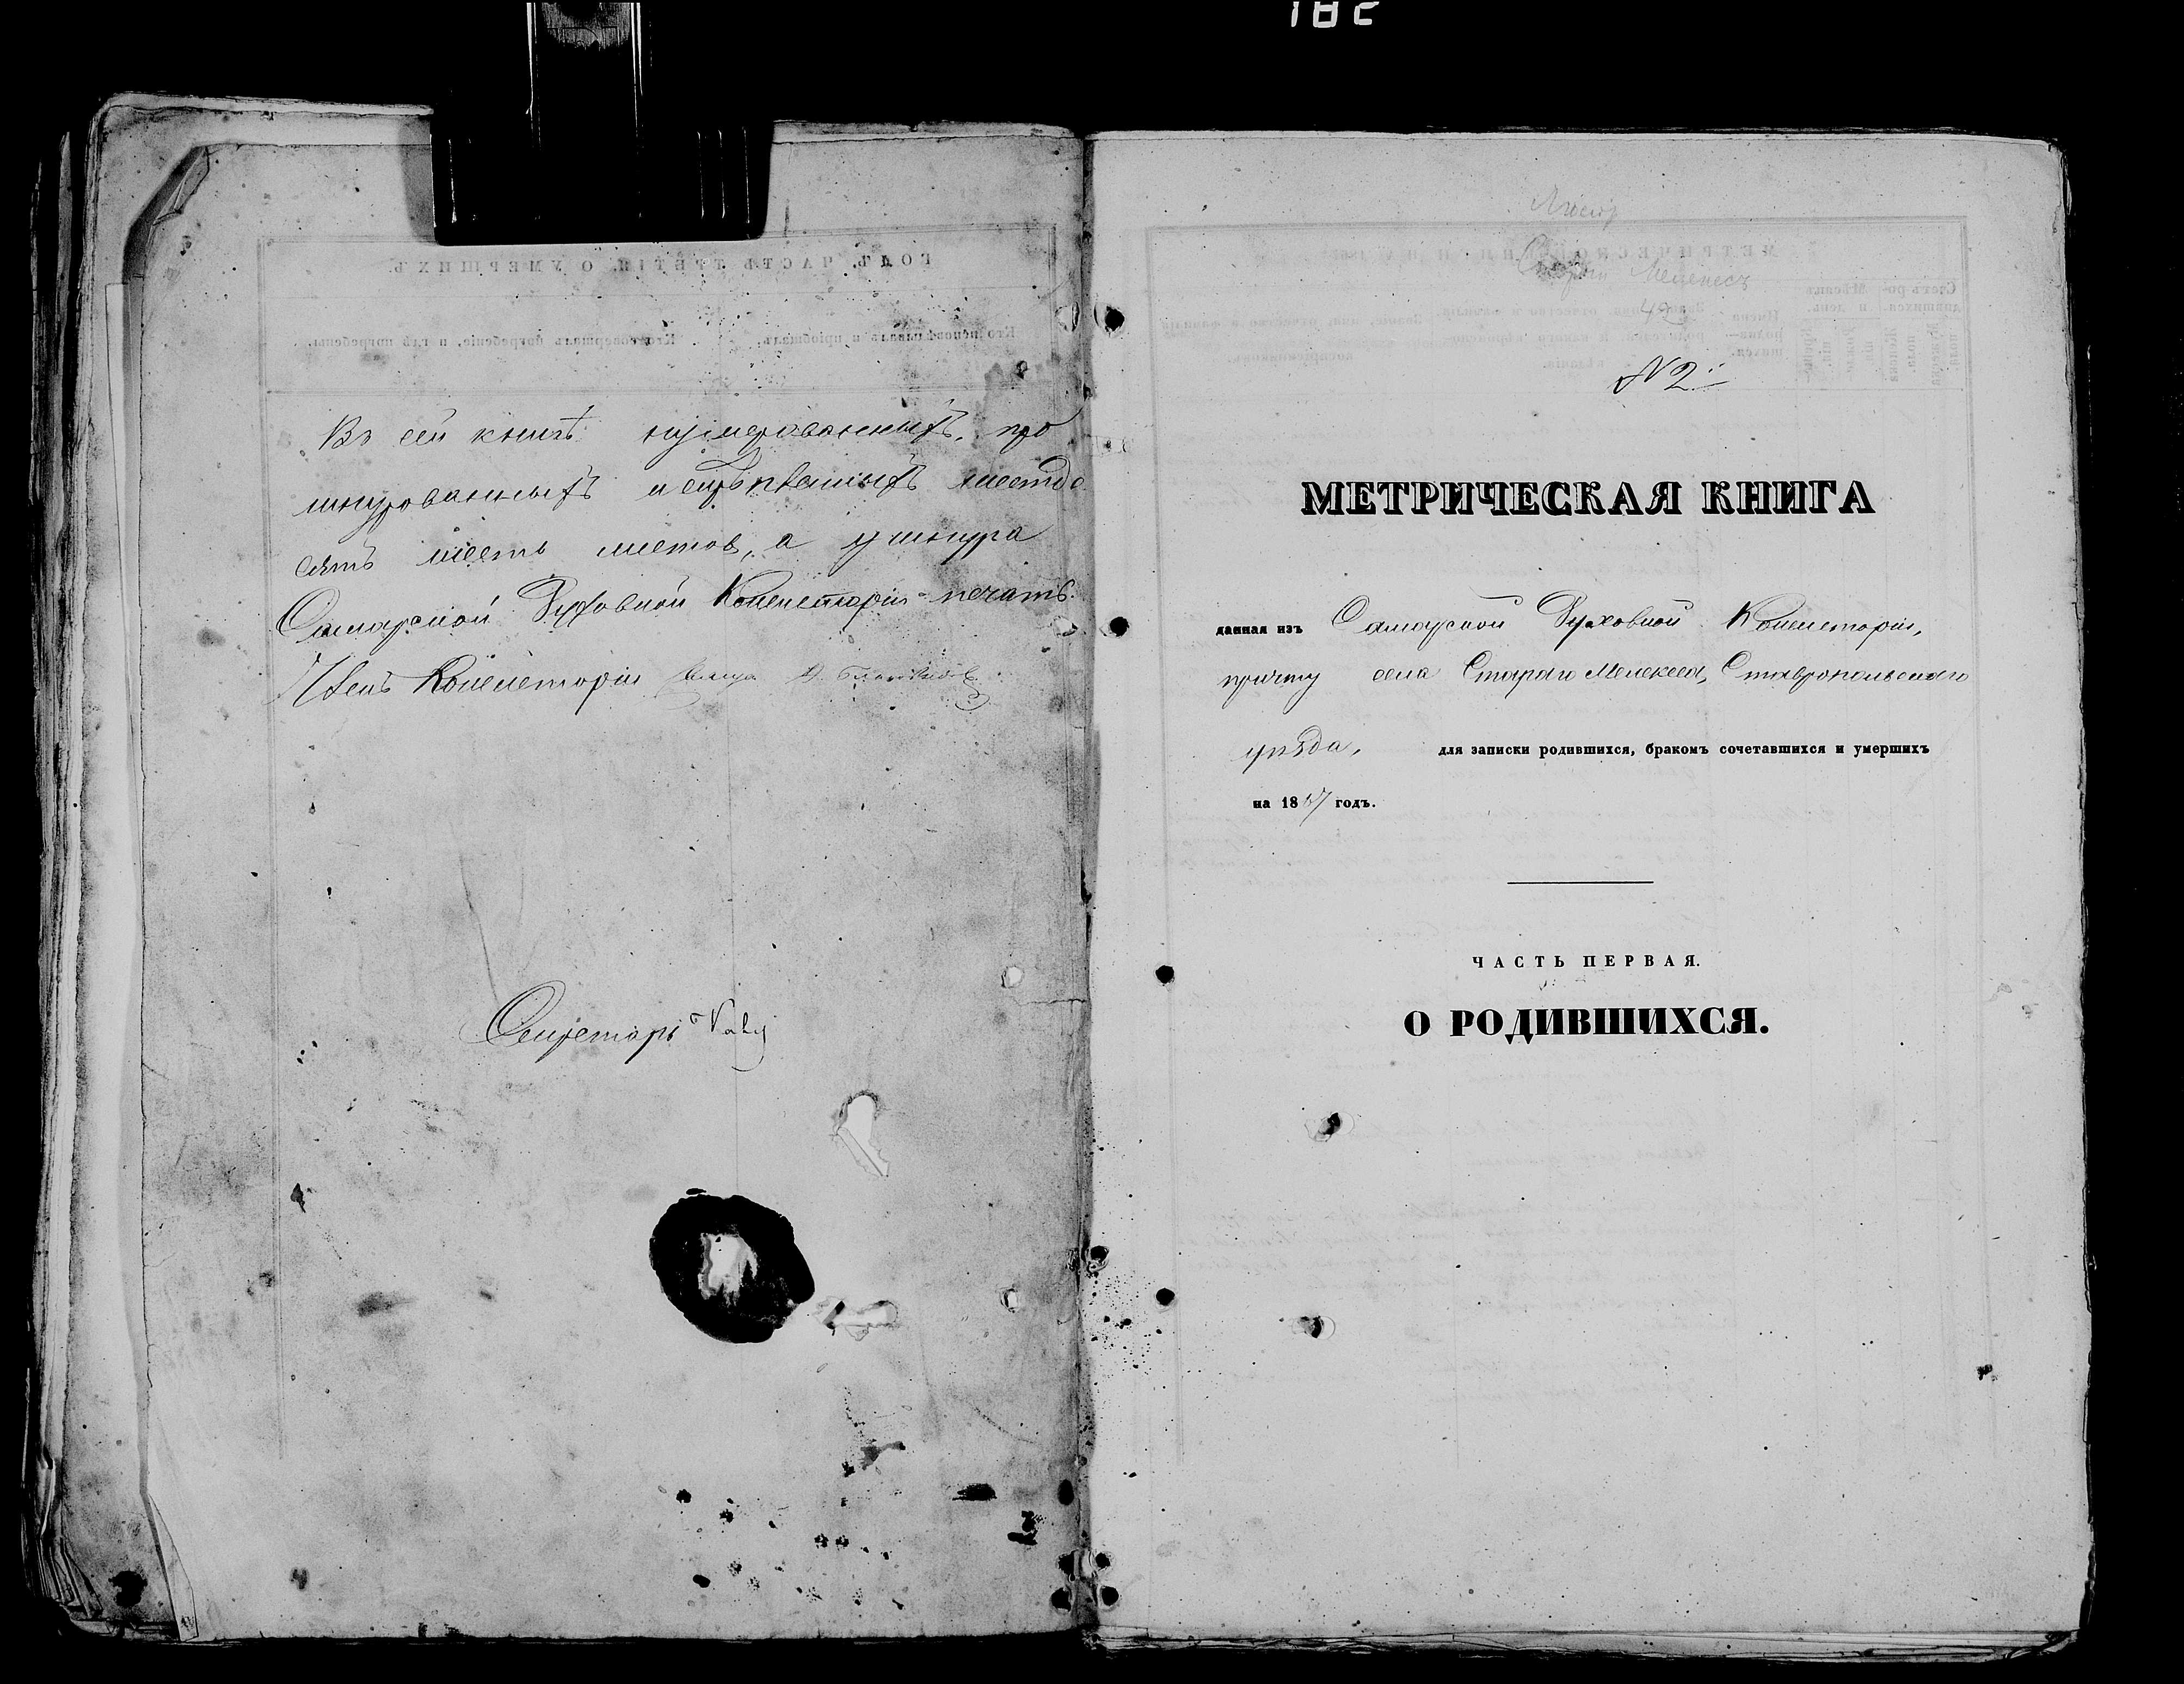 182
Въ сей книгѣ нумерованныхъ, про
шнурованныхъ и скрѣпленныхъ шестьде
сятъ шесть листов, а у шнура
Самарской Духовной Консисторіи печать.
Членъ Консисторіи
Секретарь
Старый Мелекесъ
42
№ 2й
МЕТРИЧЕСКАЯ КНИГА
данная изъ Самарской Духовной Консисторіи,
причту села Стараго Мелекеса, Ставропольскаго
уѣзда, для записки родившихся, бракомъ сочетавшихся и умершихъ
на 1857 годъ.
ЧАСТЬ ПЕРВАЯ.
О РОДИВШИХСЯ.